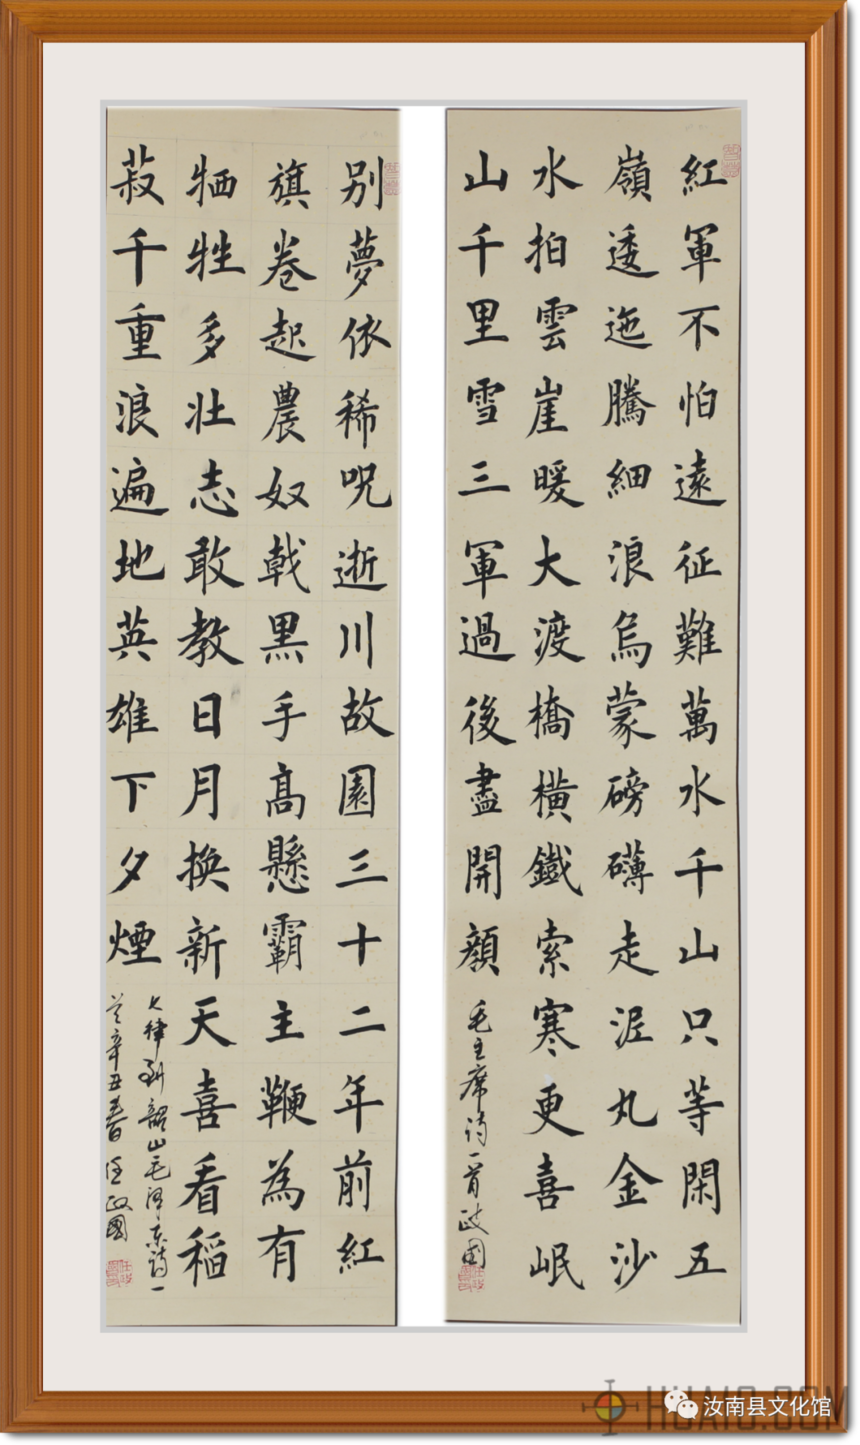 紅軍不怕遠征難萬水千山只等閑五
嶺逶迤騰細浪烏蒙磅礴走泥丸金沙
水拍雲崖暖大渡橋橫鐵索寒更喜岷
山千里雪三軍過後盡開顏
毛主席诗一首政國
别夢依稀呪逝川故園三十二年前紅
旗卷起農奴戟黑手髙懸霸主鞭為有
牺牲多壮志敢教日月換新天喜看稻
菽千重浪遍地英雄下夕煙
七律到韶山毛泽东诗一
首辛丑春日任政國
汝南县文化馆